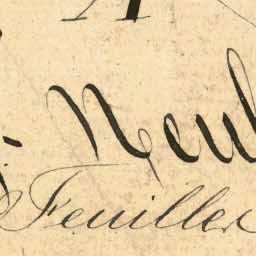 A
Neu
Feuiller